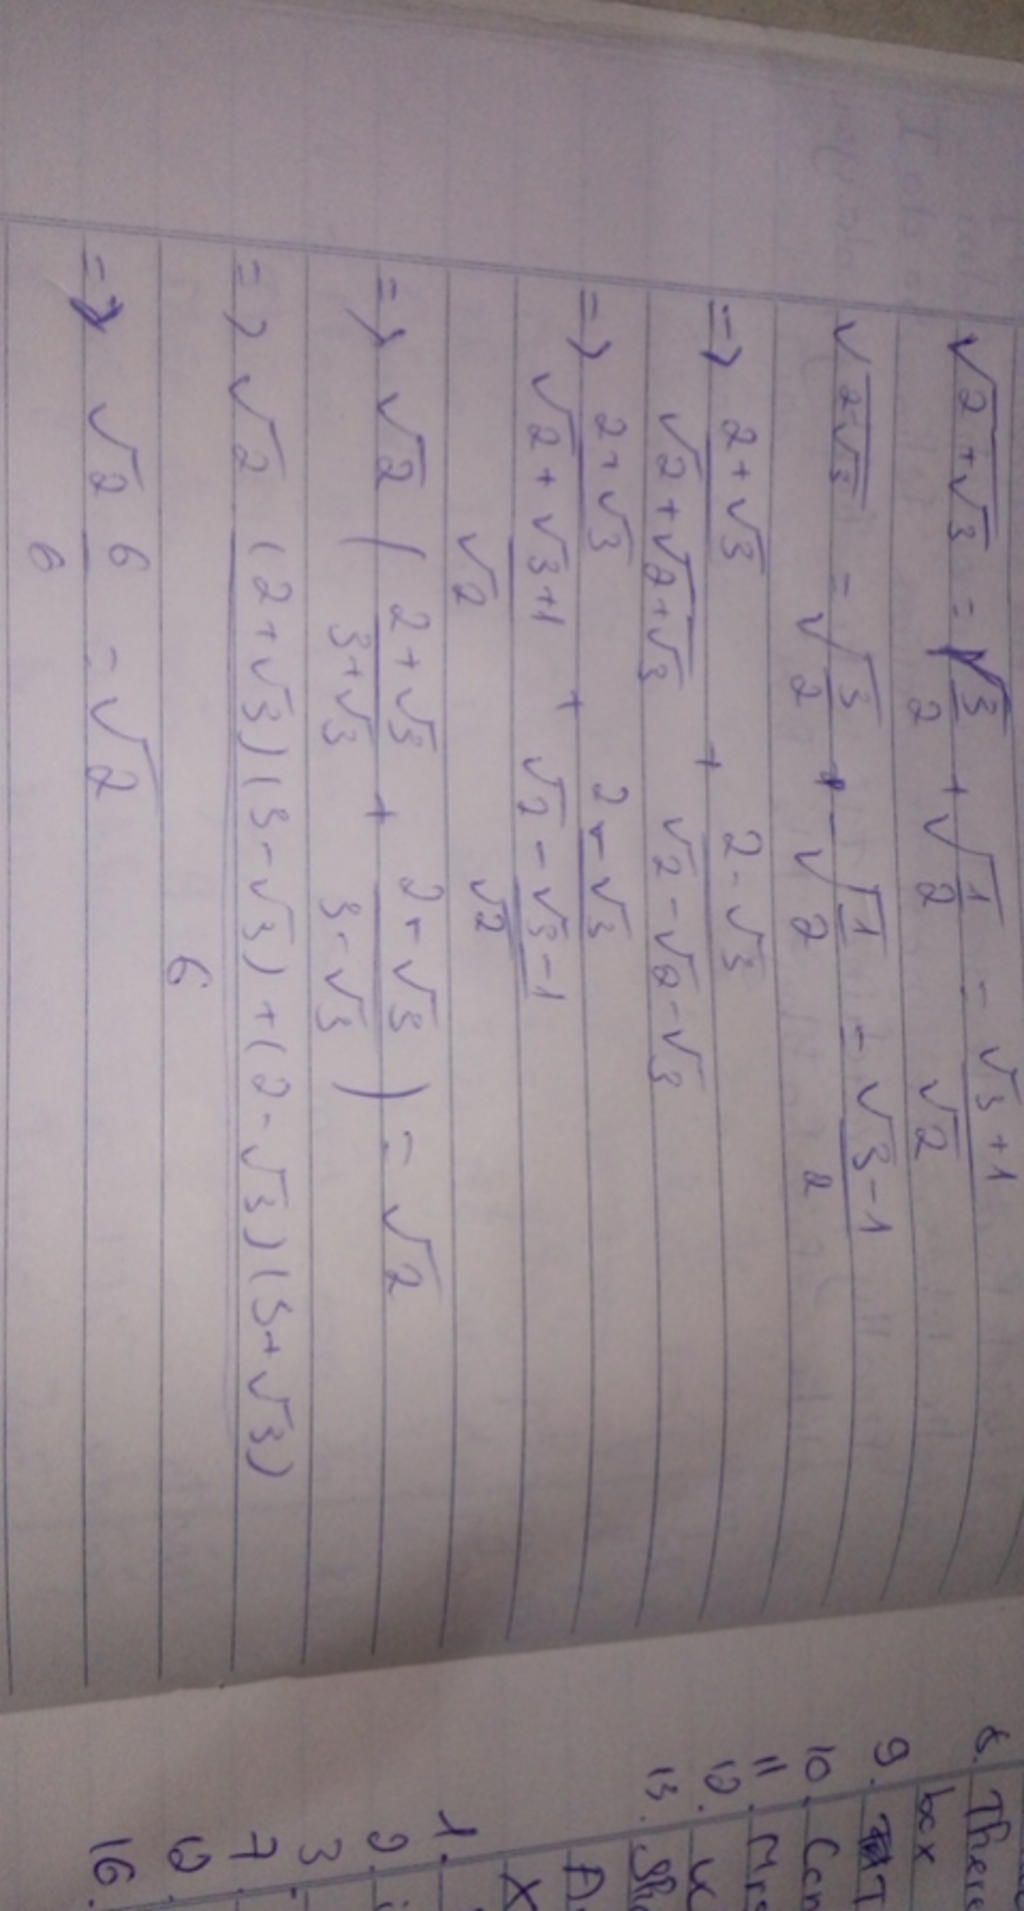 √(2+√3) = √(3/2) + √(1/2) = (√3+1)/√2
√(2-√3) = √(3/2) - √(1/2) = (√3-1)/2
=> (2+√3)/(√2+√(2+√3)) + (2-√3)/(√2-√(2-√3))
=> (2+√3)/(√2+(√3+1)/√2) + (2-√3)/(√2-(√3-1)/√2)
=> √2 ((2+√3)/(3+√3) + (2-√3)/(3-√3)) = √2
=> √2 ((2+√3)(3-√3)+(2-√3)(3+√3))/6
=> √2 6/6 = √2
8. There
box
9. T
10. Com
11. Mrs
12.
13. She
A
X
1.
2. i
3
7.
16.